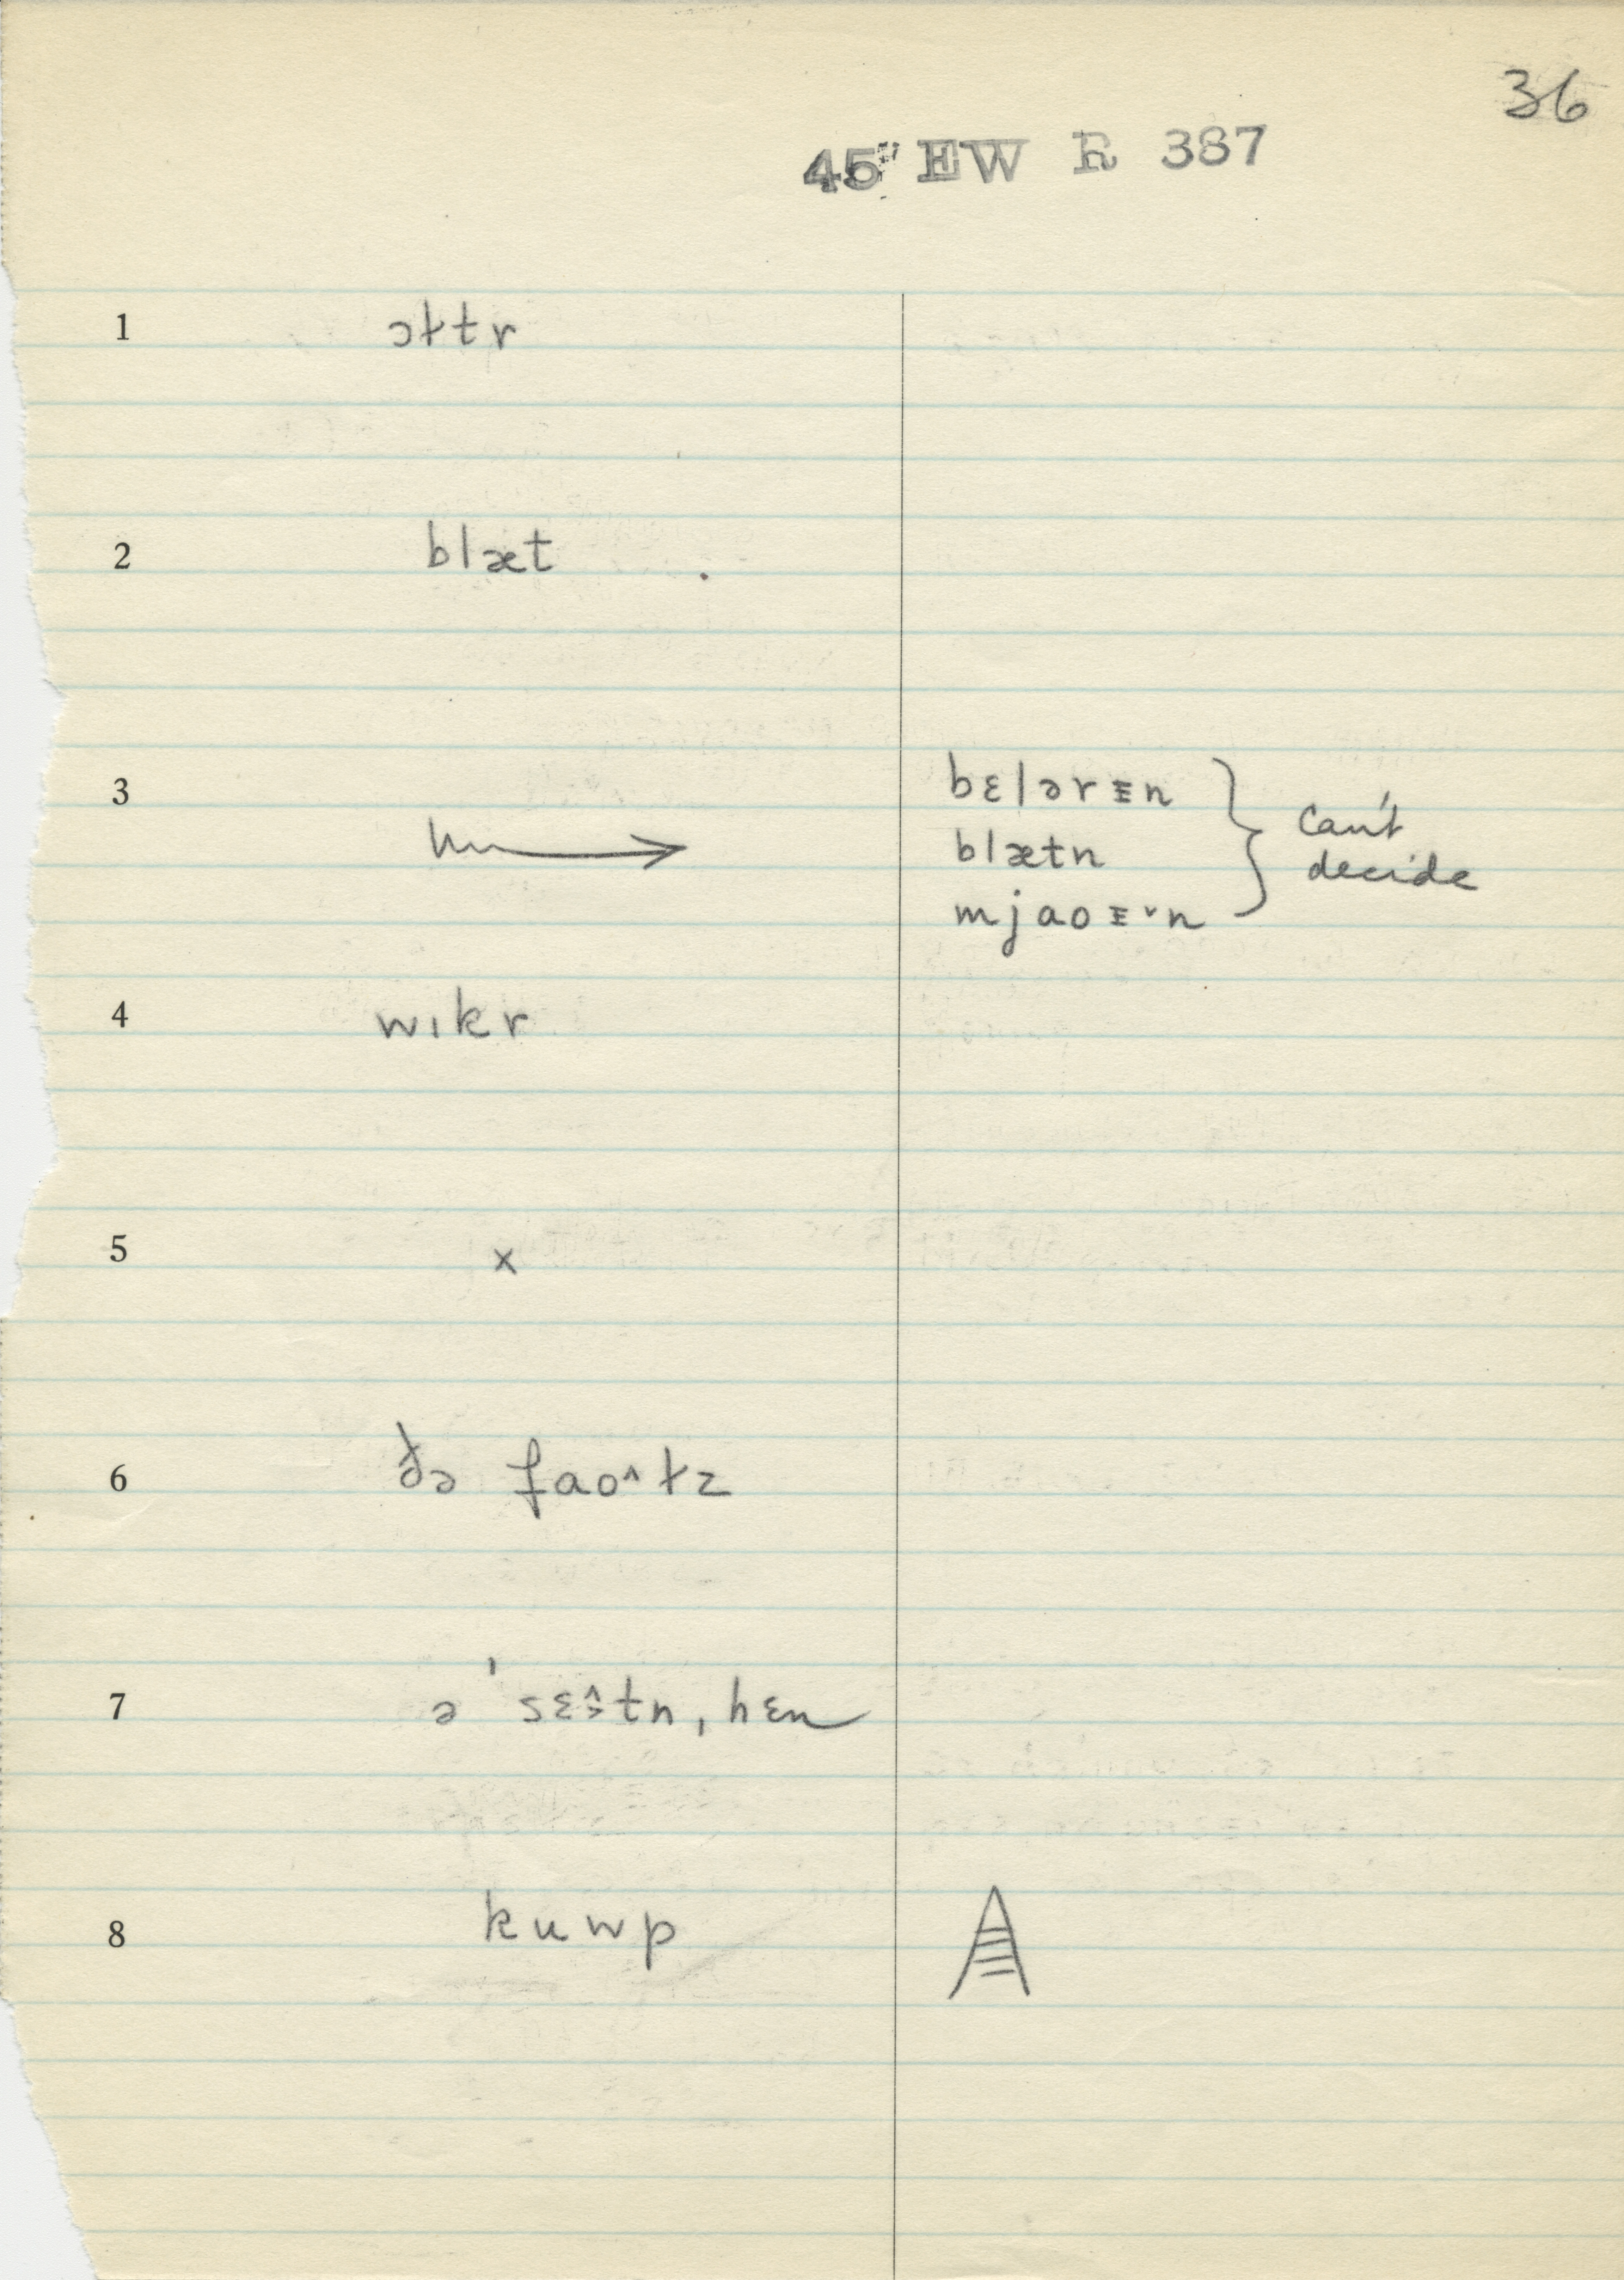 36
45" EW R 387
1 ɔɫtr
2 blæt
3
bɛlərᴈn
blætn
mjaoᴈ˅n
can't
decide
4 wıkr
5 x
6 ðə faoˆɫz
7 ə ˈsɛ̂tn, hɛn
8 kuwp